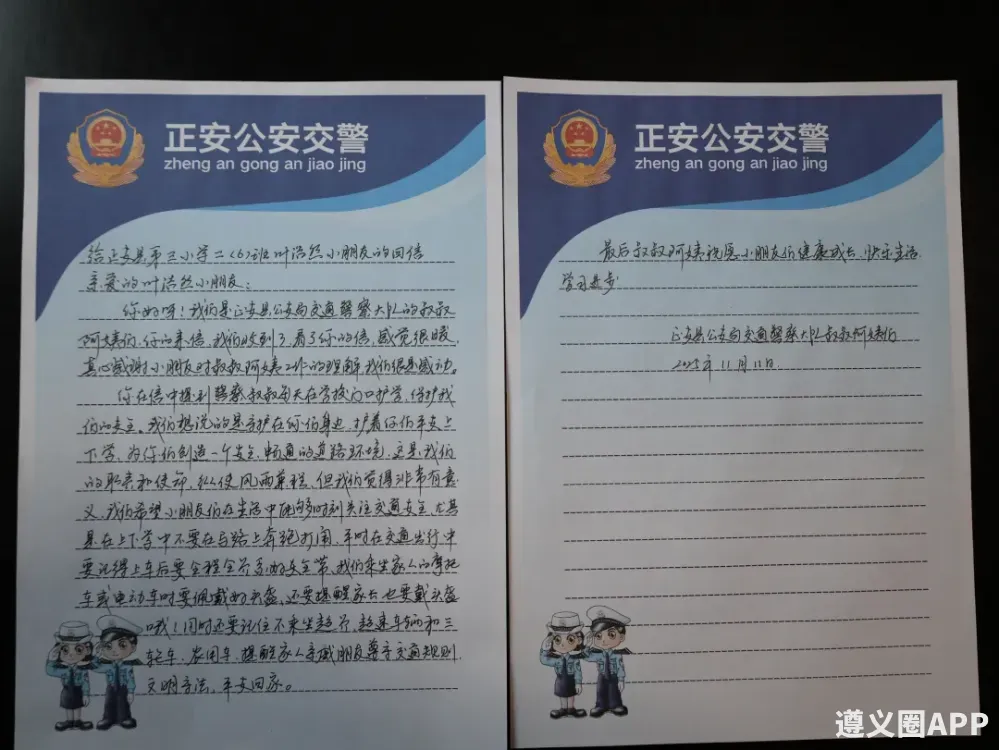 正安公安交警
zheng an gong an jiao jing
给正安县第三小学二(6)班叶浩丝小朋友的回信
亲爱的叶浩丝小朋友:
你好呀!我们是正安县公安局交通警察大队的叔叔
阿姨们,你的来信,我们收到了,看了你的信,感觉很暖,
真心感谢小朋友对叔叔阿姨工作的理解,我们很是感动。
你在信中提到警察叔叔每天在学校门口护学,保护我
们的安全。我们想说的是守护在你们身边,护着你们平安上
下学,为你们创造一个安全、畅通的道路环境,这是我们
的职责和使命,纵使风雨兼程,但我们觉得非常有意
义,我们希望小朋友们在生活中能够时刻关注交通安全,尤其
是在上下学中不要在马路上奔跑打闹,平时在交通出行中
要记得上车后要全程全员系好安全带,我们乘坐家人的摩托
车或电动车时要佩戴好头盔,还要提醒家长也要戴头盔
哦!同时还要记住不乘坐超员、超速车辆和三
轮车、农用车,提醒家人亲戚朋友遵守交通规则,
文明守法,平安回家。
正安公安交警
zheng an gong an jiao jing
最后叔叔阿姨祝愿小朋友们健康成长、快乐生活
学习进步
正安县公安局交通警察大队叔叔阿姨们
2025年11月11日
遵义圈APP